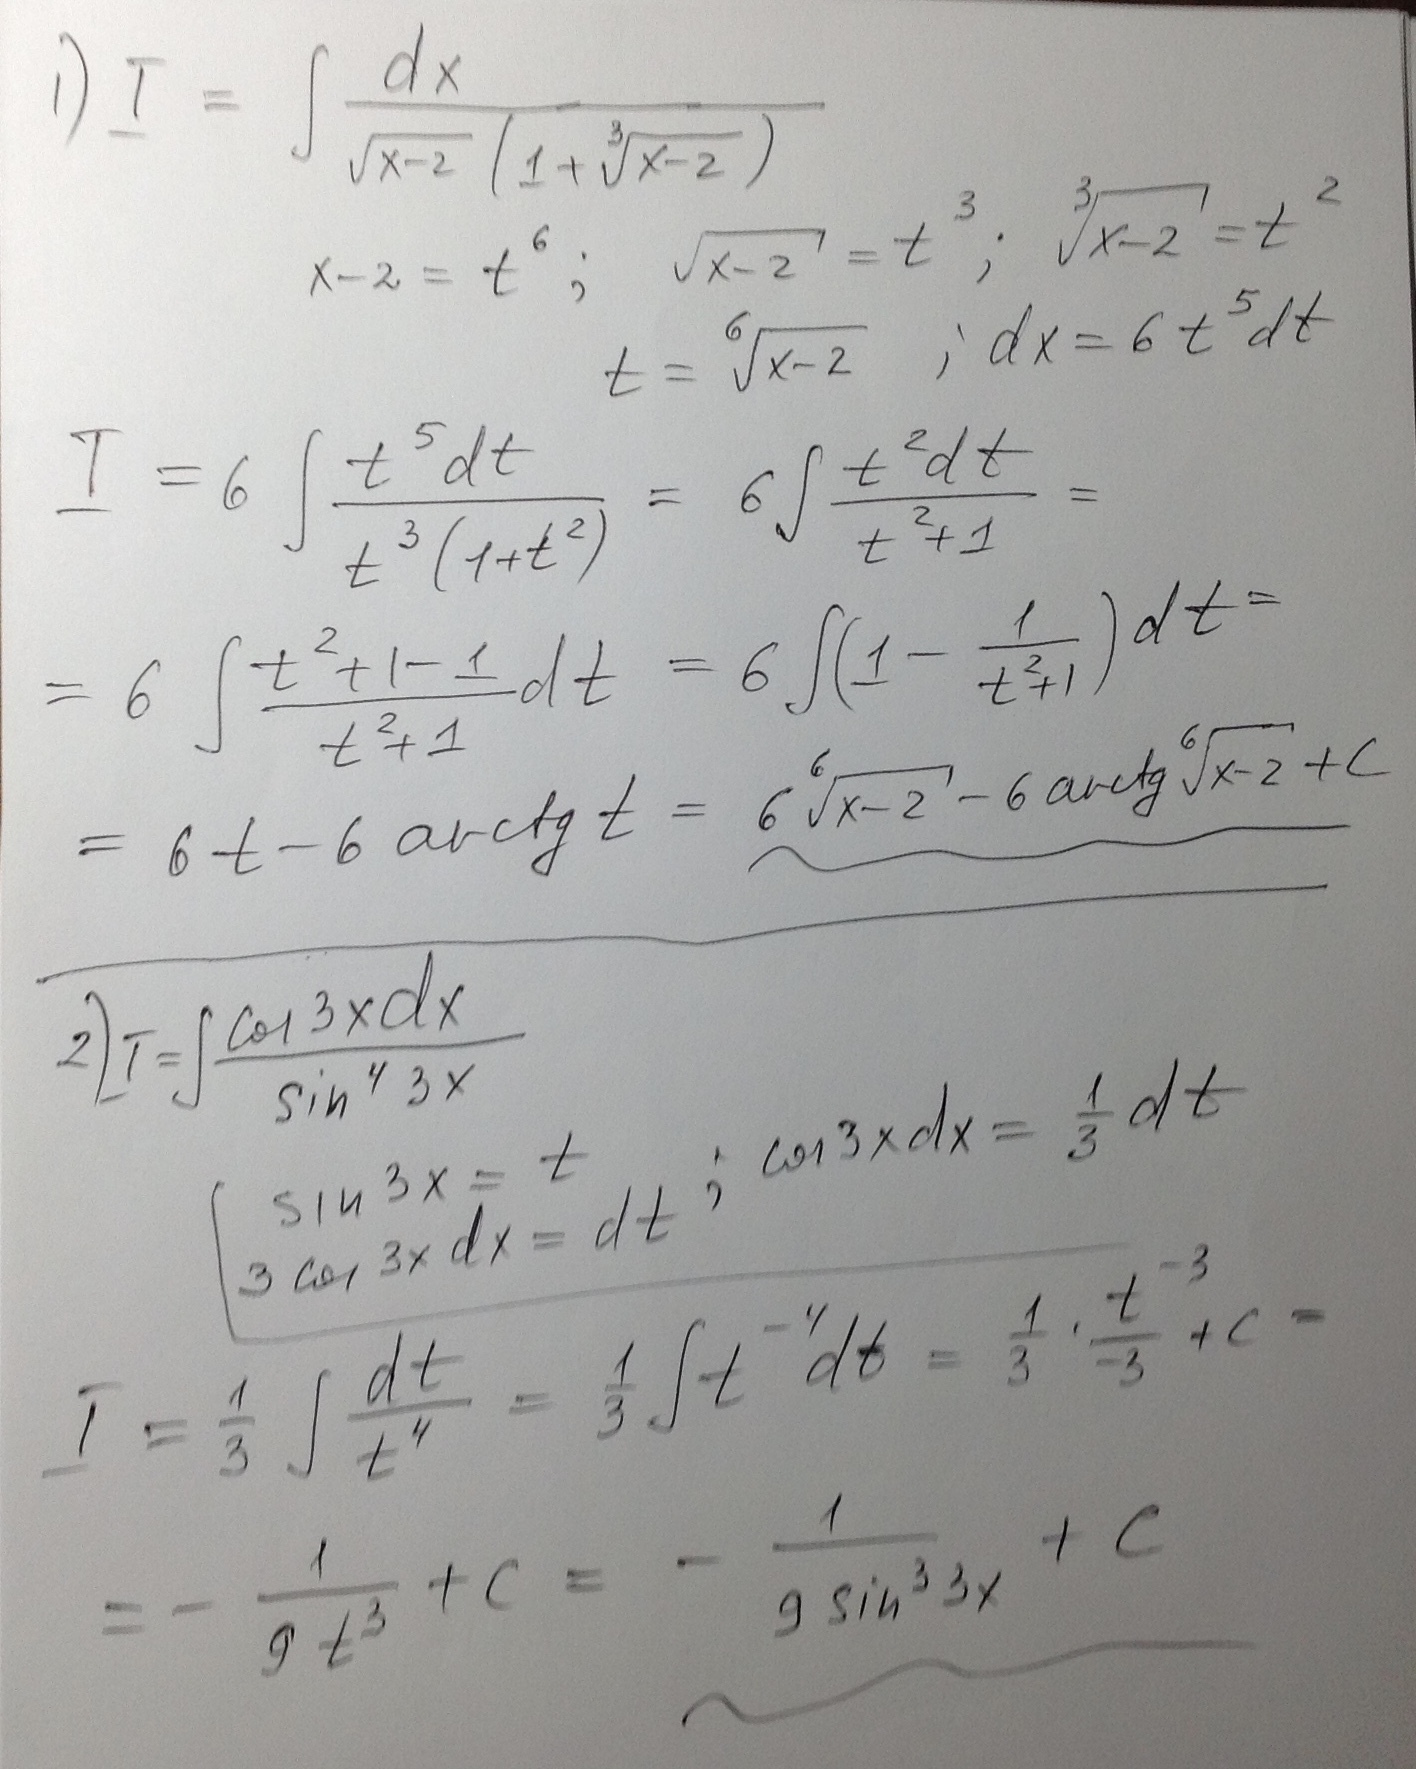 1) I = ∫ dx / (√(x-2) (1 + ∛(x-2)))
x-2 = t⁶ ; √(x-2) = t³ ; ∛(x-2) = t²
t = ⁶√(x-2) ; dx = 6t⁵dt
I = 6 ∫ t⁵dt / (t³(1+t²)) = 6 ∫ t²dt / (t²+1) =
= 6 ∫ (t²+1-1)/(t²+1) dt = 6 ∫ (1 - 1/(t²+1)) dt =
= 6t - 6 arctg t = 6 ⁶√(x-2) - 6 arctg ⁶√(x-2) + C
2) I = ∫ cos 3x dx / sin⁴ 3x
sin 3x = t ; cos 3x dx = 1/3 dt
3 cos 3x dx = dt
I = 1/3 ∫ dt/t⁴ = 1/3 ∫ t⁻⁴ dt = 1/3 · t⁻³/-3 + C =
= - 1/(9t³) + C = - 1/(9 sin³ 3x) + C